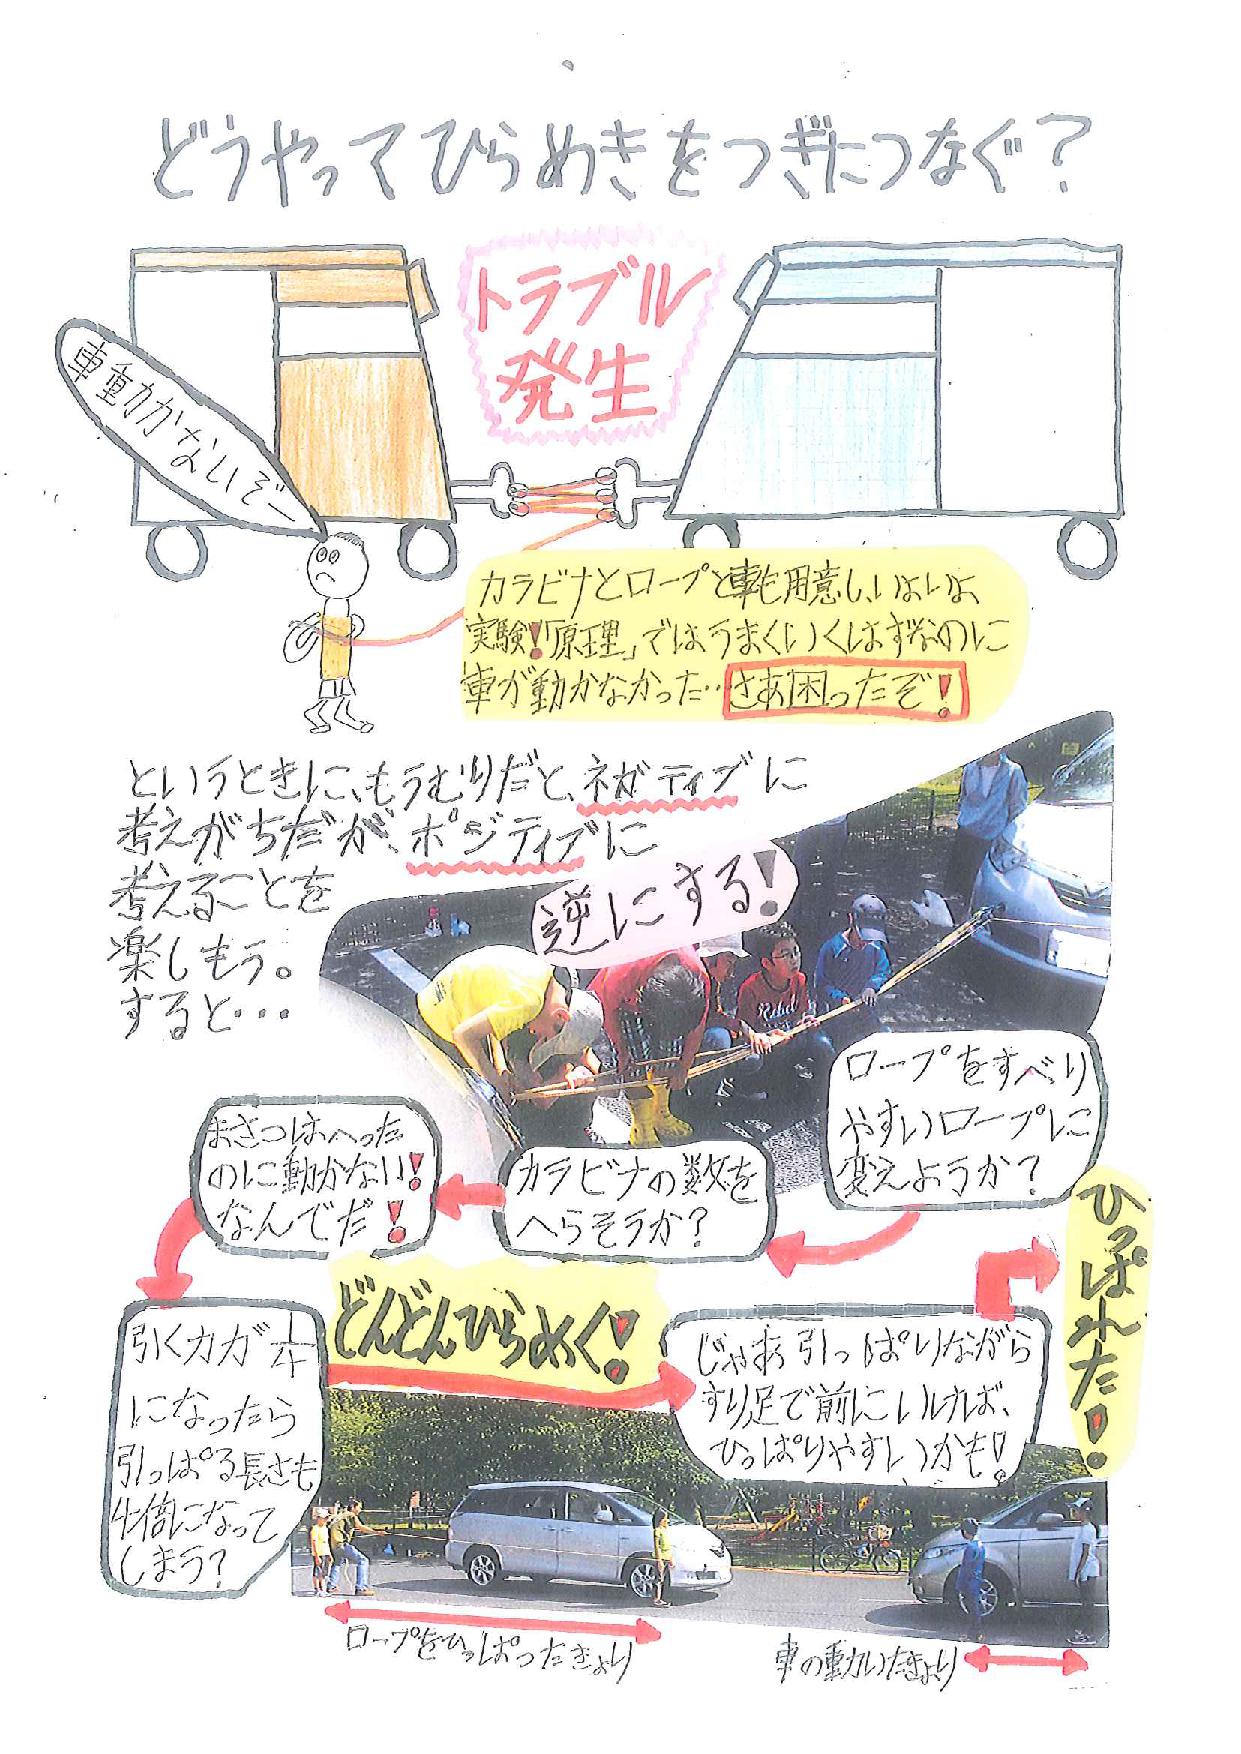 どうやってひらめきをつぎにつなぐ?
トラブル
発生
車動かないぞー
カラビナとロープと車も用意し、いよいよ
実験!「原理」ではうまくいくはずなのに
車が動かなかった…さあ困ったぞ!
というときに、もうむりだと、ネガティブに
考えがちだが、ポジティブに
考えることを
楽しもう。
すると…
逆にする!
ロープをすべり
やすいロープに
変えようか?
カラビナの数を
へらそうか?
まさつはへった
のに動かない!
なんでだ!
引く力が1/4
になったら
引っぱる長さも
4倍になって
しまう?
どんどんひらめく!
じゃあ引っぱりながら
すり足で前にいければ、
ひっぱりやすいかも!
ひっぱれた!
ロープをひっぱったきょり
車の動いたきょり